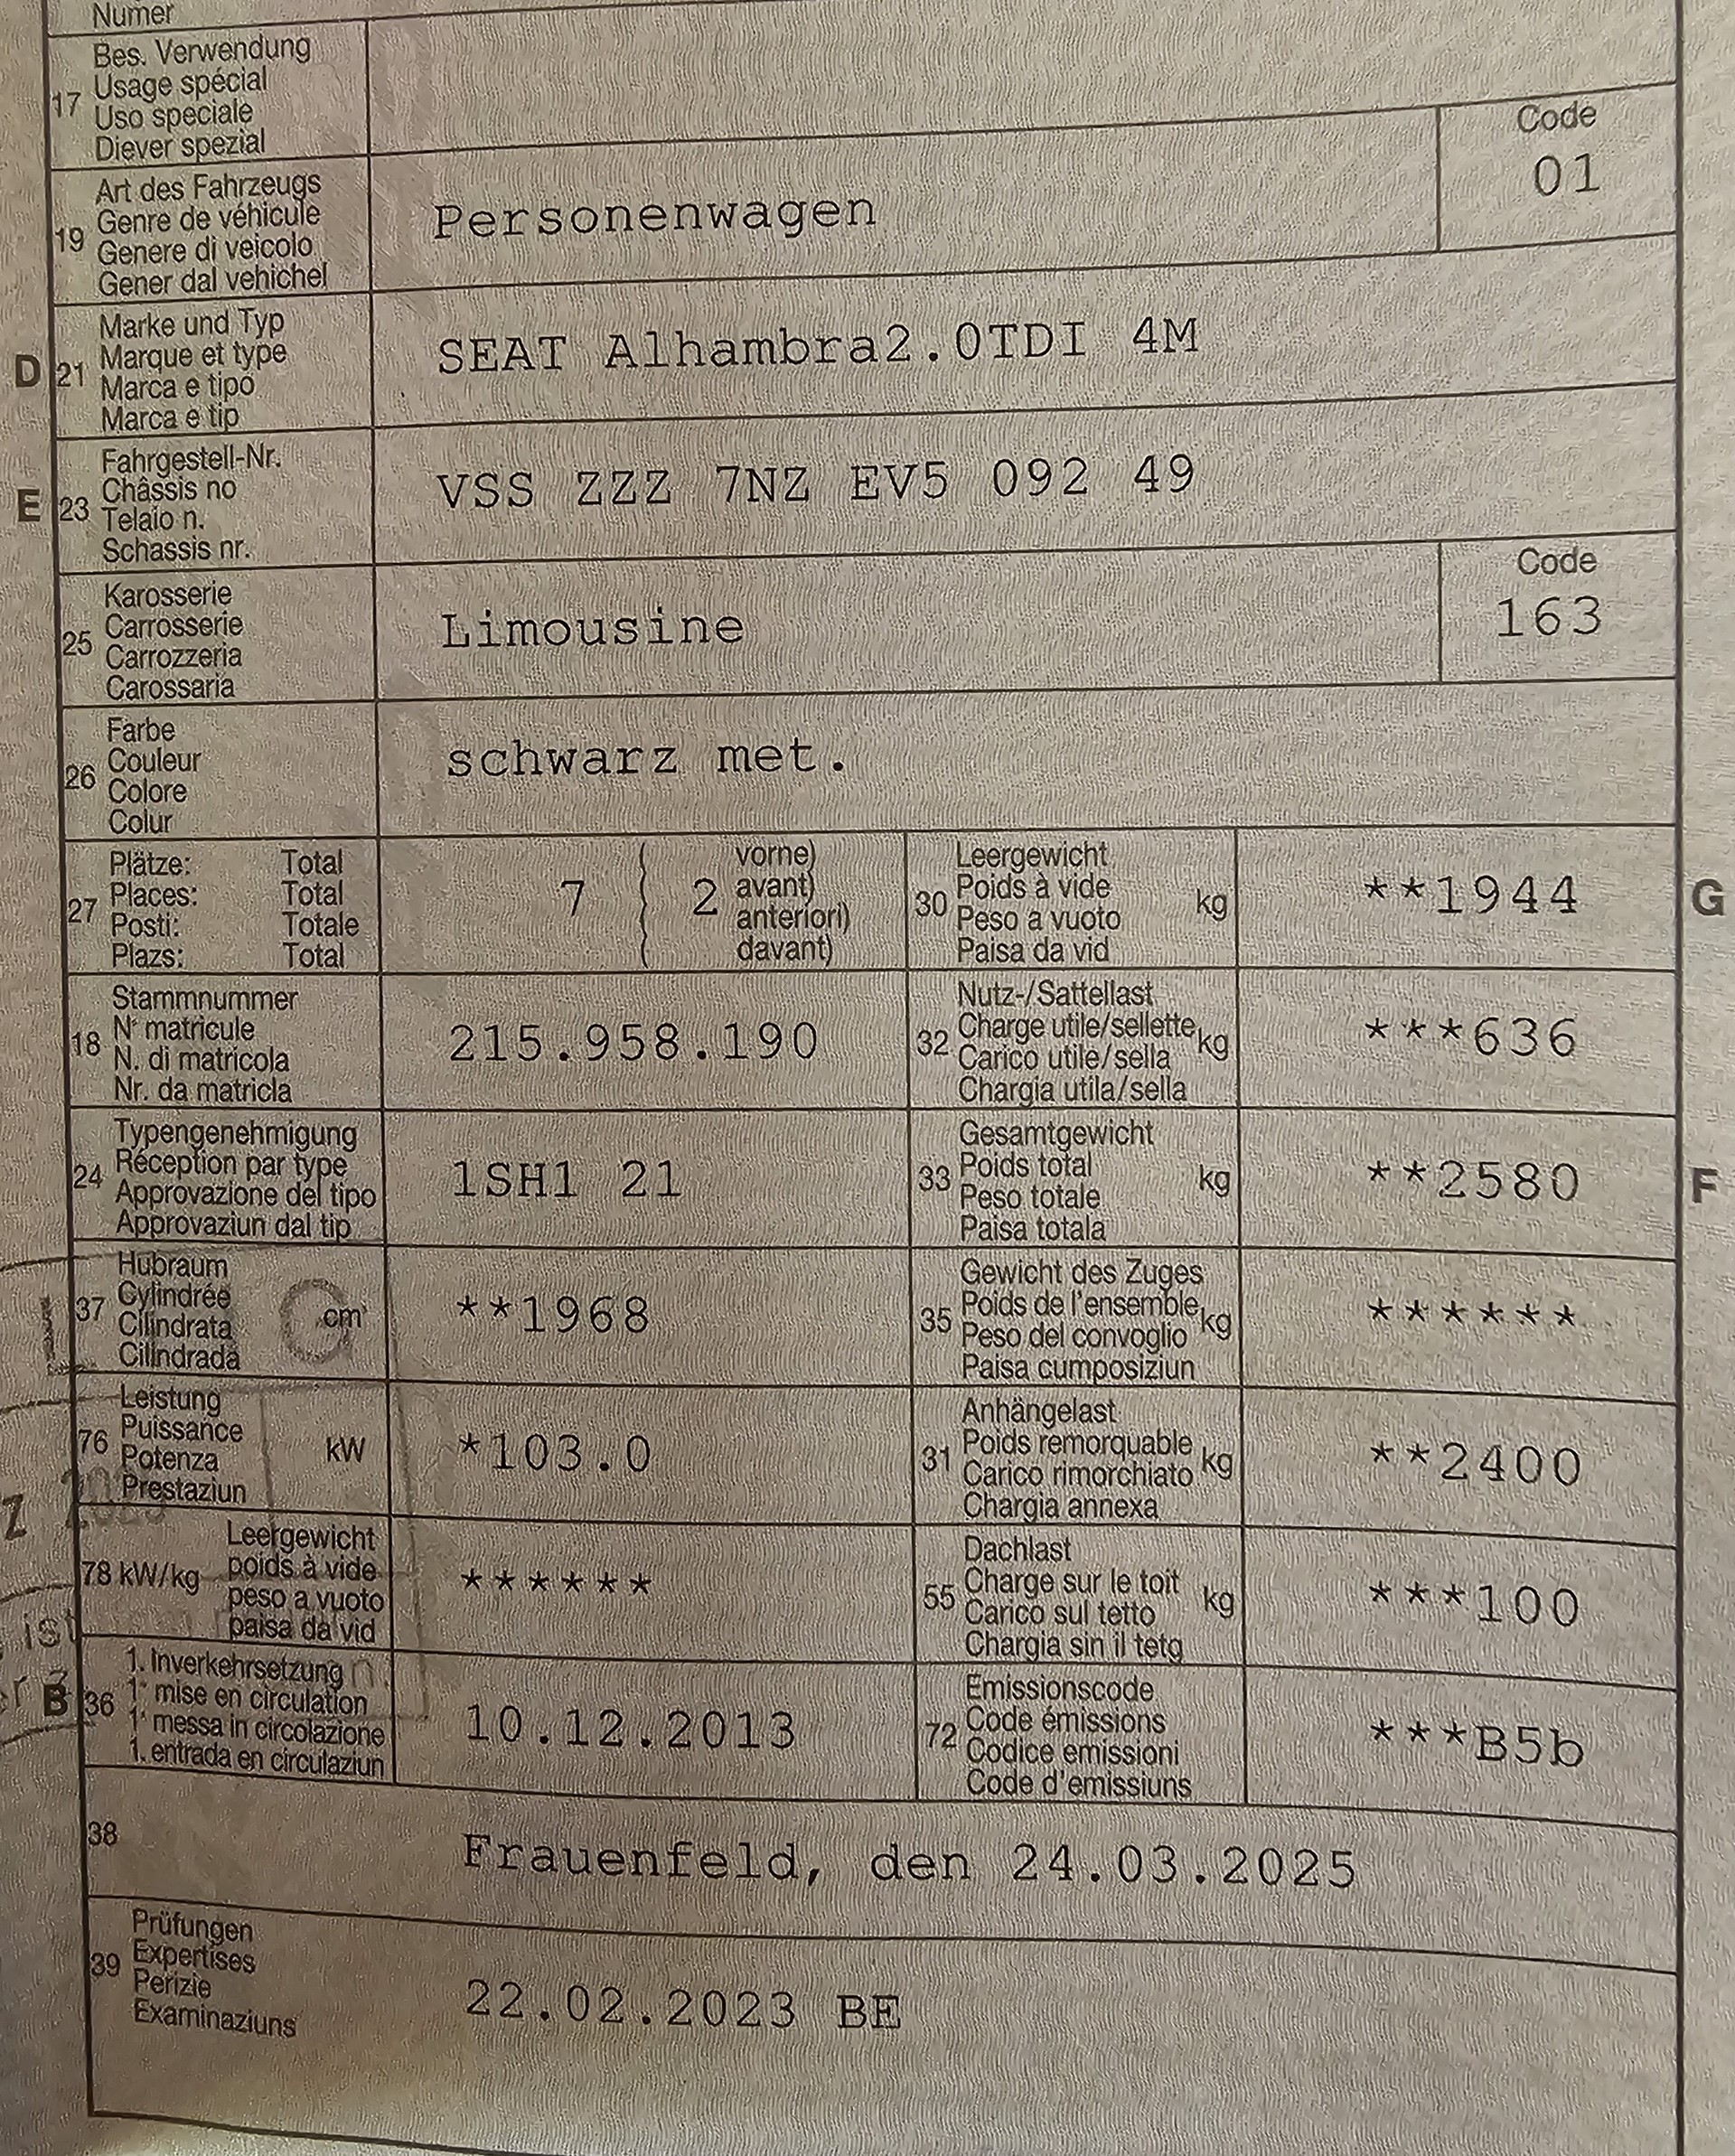 Numer
17 Bes. Verwendung
Usage spécial
Uso speciale
Diever spezial
19 Art des Fahrzeugs
Genre de véhicule
Genere di veicolo
Gener dal vehichel
Personenwagen
Code
01
D 21 Marke und Typ
Marque et type
Marca e tipo
Marca e tip
SEAT Alhambra2.0TDI 4M
E 23 Fahrgestell-Nr.
Châssis no
Telaio n.
Schassis nr.
VSS ZZZ 7NZ EV5 092 49
25 Karosserie
Carrosserie
Carrozzeria
Carossaria
Limousine
Code
163
26 Farbe
Couleur
Colore
Colur
schwarz met.
27 Plätze: Total
Places: Total
Posti: Totale
Plazs: Total
7 2
vorne)
avant)
anteriori)
davant)
30 Leergewicht
Poids à vide
Peso a vuoto
Paisa da vid
kg
**1944
G
18 Stammnummer
N° matricule
N. di matricola
Nr. da matricla
215.958.190
32 Nutz-/Sattellast
Charge utile/sellette
Carico utile/sella
Chargia utila/sella
kg
***636
24 Typengenehmigung
Réception par type
Approvazione del tipo
Approvaziun dal tip
1SH1 21
33 Gesamtgewicht
Poids total
Peso totale
Paisa totala
kg
**2580
F
37 Hubraum
Cylindrée
Cilindrata
Cilindrada
cm³
**1968
35 Gewicht des Zuges
Poids de l'ensemble
Peso del convoglio
Paisa cumposiziun
kg
******
76 Leistung
Puissance
Potenza
Prestaziun
kW
*103.0
31 Anhängelast
Poids remorquable
Carico rimorchiato
Chargia annexa
kg
**2400
78 kW/kg
Leergewicht
poids à vide
peso a vuoto
paisa da vid
******
55 Dachlast
Charge sur le toit
Carico sul tetto
Chargia sin il tetg
kg
***100
ist
B 36 1. Inverkehrsetzung
1' mise en circulation
1' messa in circolazione
1. entrada en circulaziun
10.12.2013
72 Emissionscode
Code émissions
Codice emissioni
Code d'emissiuns
***B5b
38
Frauenfeld, den 24.03.2025
39 Prüfungen
Expertises
Perizie
Examinaziuns
22.02.2023 BE